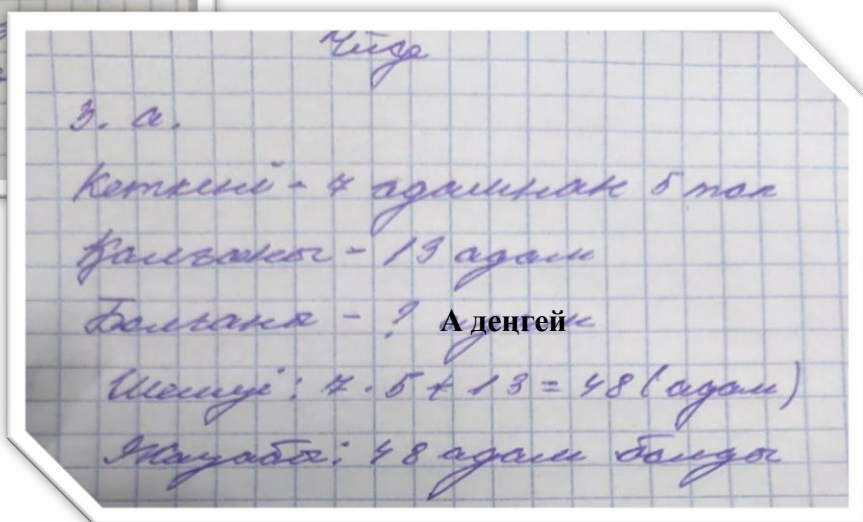 Үйде
3. а.
Кеткені - 7 адамнан 5 топ
Қалғаны - 13 адам
Болғаны - ? А деңгей
Шешуі: 7 · 5 + 13 = 48 (адам)
Жауабы: 48 адам болды